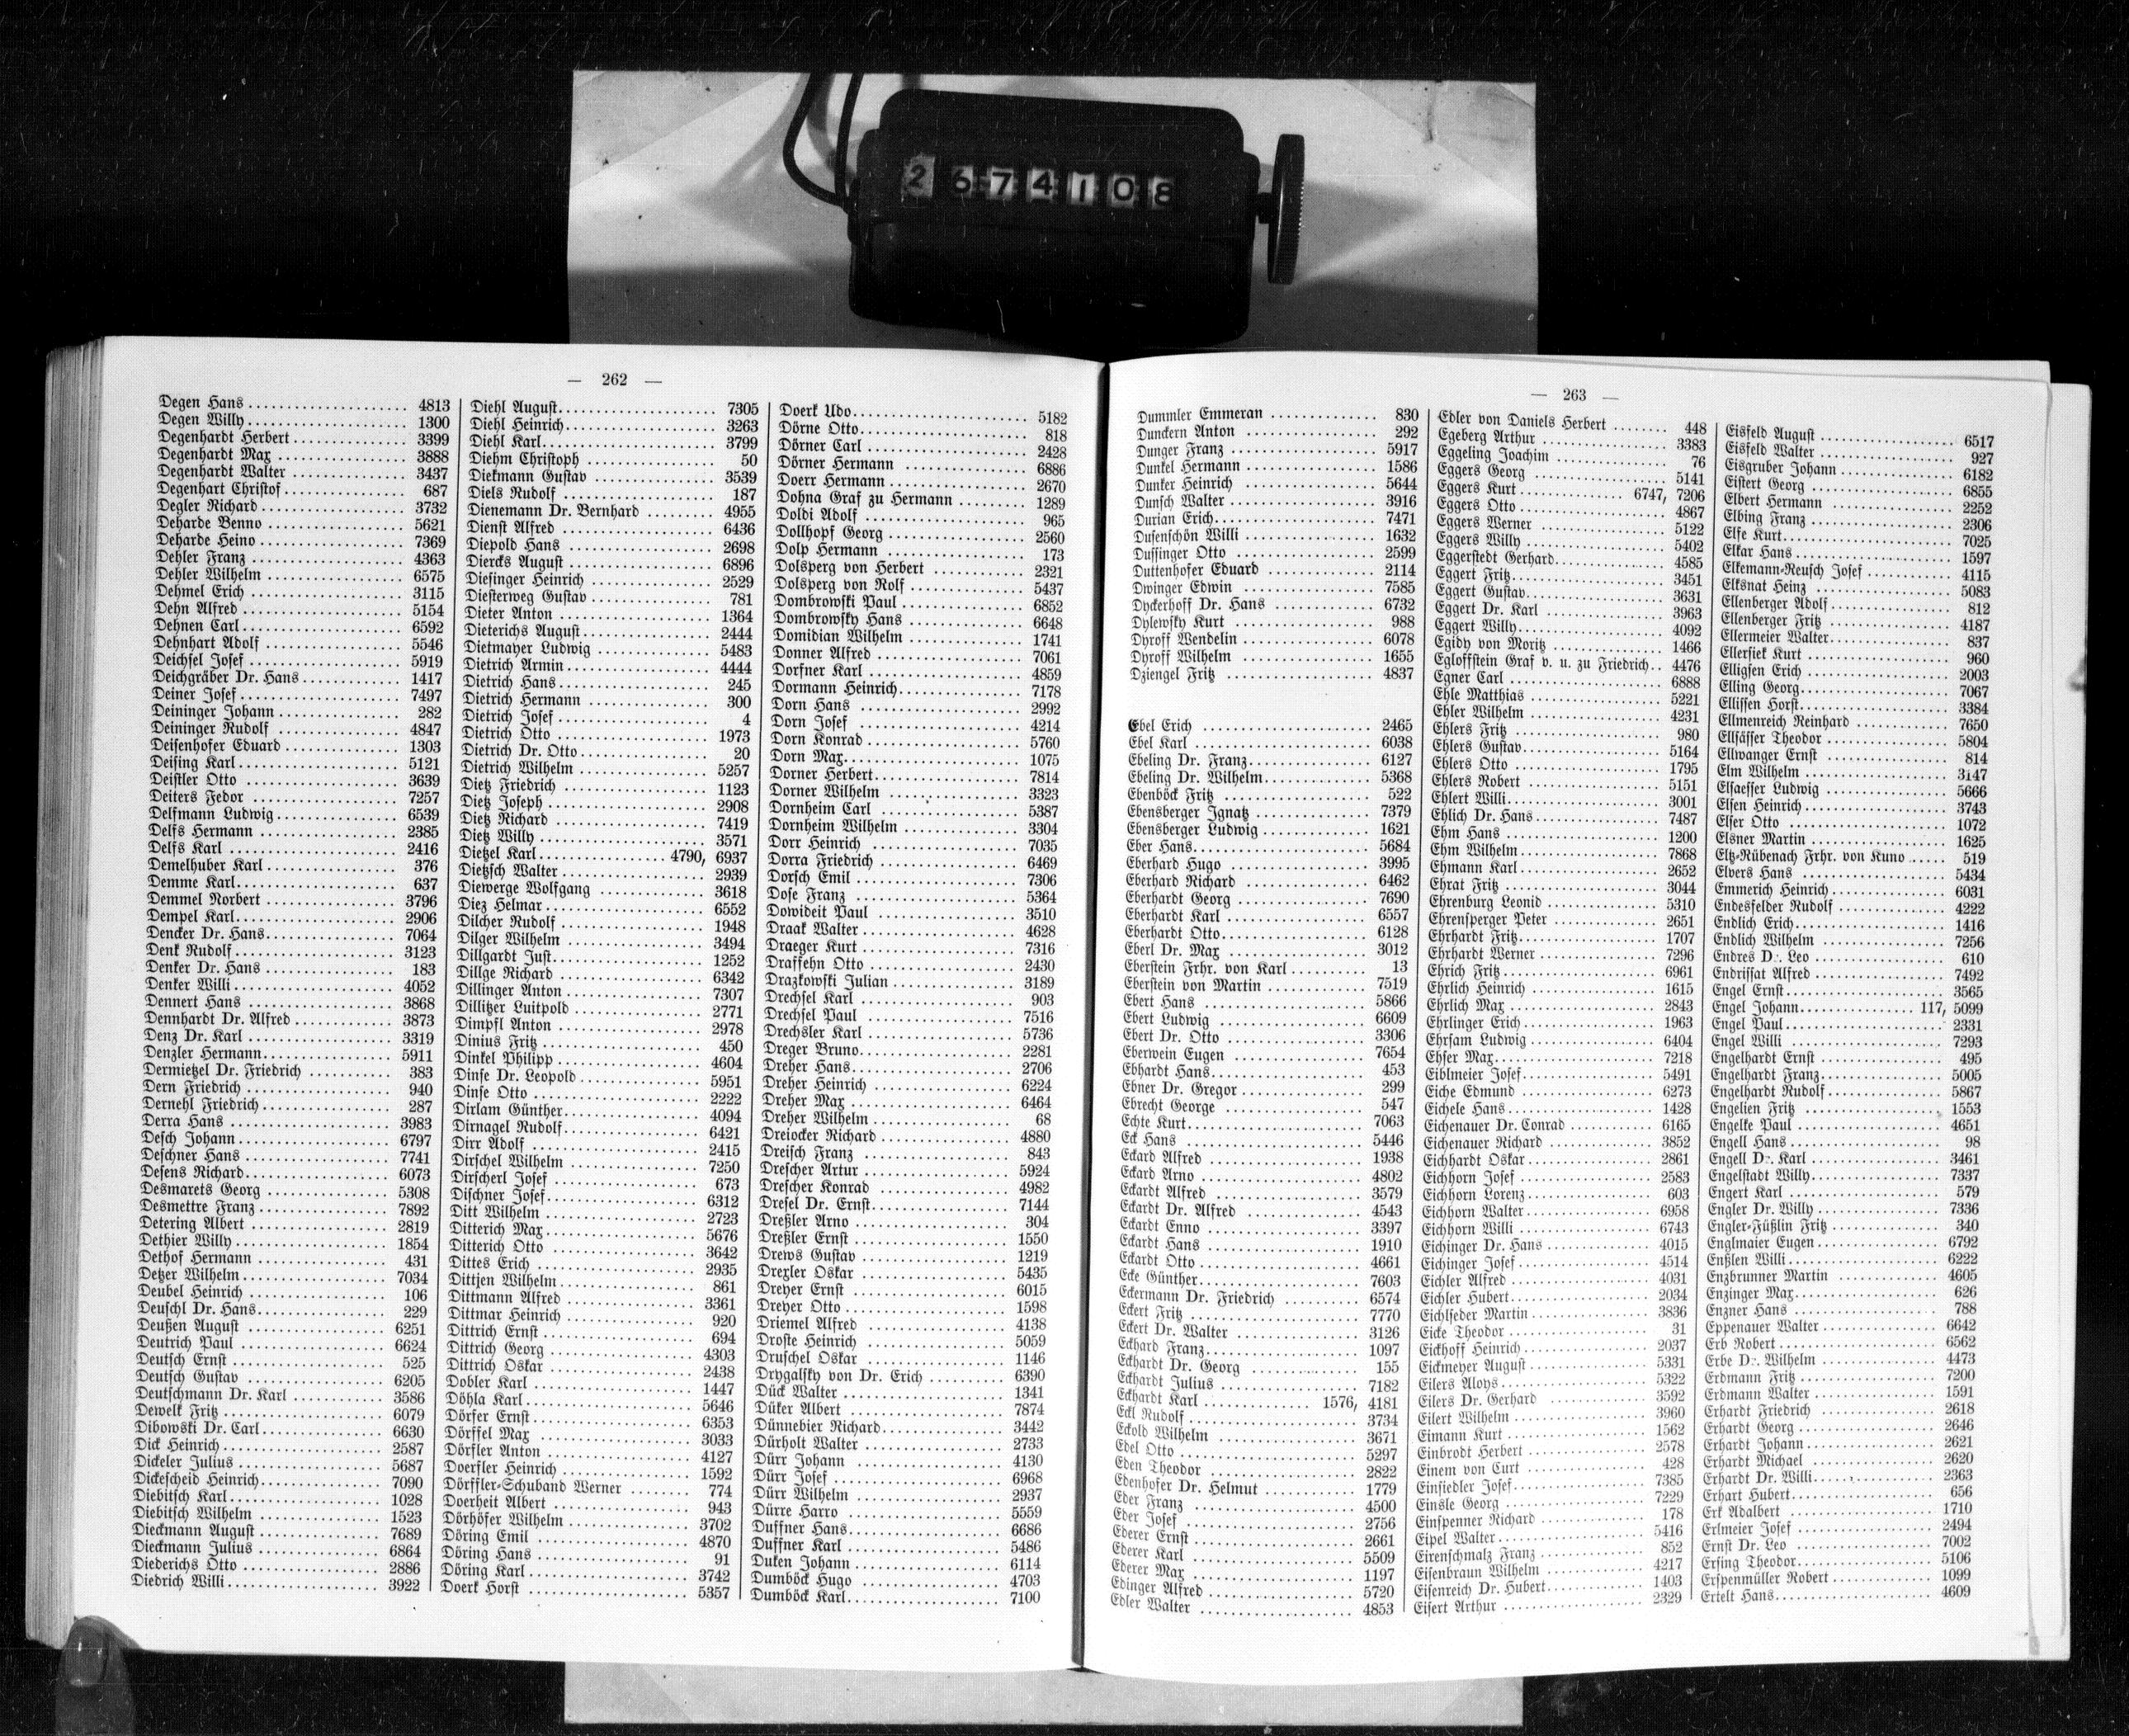 2674108
— 262 —
Degen Hans 4813
Degen Willy 1300
Degenhardt Herbert 3399
Degenhardt Max 3888
Degenhardt Walter 3437
Degenhart Christof 687
Degler Richard 3732
Deharde Benno 5621
Deharde Heino 7369
Dehler Franz 4363
Dehler Wilhelm 6575
Dehmel Erich 3115
Dehn Alfred 5154
Dehnen Carl 6592
Dehnhart Adolf 5546
Deichsel Josef 5919
Deichgräber Dr. Hans 1417
Deiner Josef 7497
Deininger Johann 282
Deininger Rudolf 4847
Deisenhofer Eduard 1303
Deising Karl 5121
Deistler Otto 3639
Deiters Fedor 7257
Delfmann Ludwig 6539
Delfs Hermann 2385
Delfs Karl 2416
Demelhuber Karl 376
Demme Karl 637
Demmel Norbert 3796
Dempel Karl 2906
Dencker Dr. Hans 7064
Denk Rudolf 3123
Denker Dr. Hans 183
Denker Willi 4052
Dennert Hans 3868
Dennhardt Dr. Alfred 3873
Denz Dr. Karl 3319
Denzler Hermann 5911
Dermietzel Dr. Friedrich 383
Dern Friedrich 940
Dernehl Friedrich 287
Derra Hans 3983
Desch Johann 6797
Deschner Hans 7741
Desens Richard 6073
Desmarets Georg 5308
Desmettre Franz 7892
Detering Albert 2819
Dethier Willy 1854
Dethof Hermann 431
Detzer Wilhelm 7034
Deubel Heinrich 106
Deuschl Dr. Hans 229
Deußen August 6251
Deutrich Paul 6624
Deutsch Ernst 525
Deutsch Gustav 6205
Deutschmann Dr. Karl 3586
Dewelk Fritz 6079
Dibowski Dr. Carl 6630
Dick Heinrich 2587
Dickeler Julius 5687
Dickescheid Heinrich 7090
Diebitsch Karl 1028
Diebitsch Wilhelm 1523
Dieckmann August 7689
Dieckmann Julius 6864
Diederichs Otto 2886
Diedrich Willi 3922
Diehl August 7305
Diehl Heinrich 3263
Diehl Karl 3799
Diehm Christoph 50
Diekmann Gustav 3539
Diels Rudolf 187
Dienemann Dr. Bernhard 4955
Dienst Alfred 6436
Diepold Hans 2698
Diercks August 6896
Diesinger Heinrich 2529
Diesterweg Gustav 781
Dieter Anton 1364
Dieterichs August 2444
Dietmayer Ludwig 5483
Dietrich Armin 4444
Dietrich Hans 245
Dietrich Hermann 300
Dietrich Josef 4
Dietrich Otto 1973
Dietrich Dr. Otto 20
Dietrich Wilhelm 5257
Dietz Friedrich 1123
Dietz Joseph 2908
Dietz Richard 7419
Dietz Willy 3571
Dietzel Karl 4790, 6937
Dietzsch Walter 2939
Diewerge Wolfgang 3618
Diez Helmar 6552
Dilcher Rudolf 1948
Dilger Wilhelm 3494
Dillgardt Just 1252
Dillge Richard 6342
Dillinger Anton 7307
Dillitzer Luitpold 2771
Dimpfl Anton 2978
Dinius Fritz 450
Dinkel Philipp 4604
Dinse Dr. Leopold 5951
Dinse Otto 2222
Dirlam Günther 4094
Dirnagel Rudolf 6421
Dirr Adolf 2415
Dirschel Wilhelm 7250
Dirscherl Josef 673
Dischner Josef 6312
Ditt Wilhelm 2723
Ditterich Max 5676
Ditterich Otto 3642
Dittes Erich 2935
Dittjen Wilhelm 861
Dittmann Alfred 3361
Dittmar Heinrich 920
Dittrich Ernst 694
Dittrich Georg 4303
Dittrich Oskar 2438
Dobler Karl 1447
Döhla Karl 5646
Dörfer Ernst 6353
Dörffel Max 3033
Dörfler Anton 4127
Doerfler Heinrich 1592
Dörffler-Schuband Werner 774
Doerheit Albert 943
Dörhöfer Wilhelm 3702
Döring Emil 4870
Döring Hans 91
Döring Karl 3742
Doerk Horst 5357
Doerk Udo 5182
Dörne Otto 818
Dörner Carl 2428
Dörner Hermann 6886
Doerr Hermann 2670
Dohna Graf zu Hermann 1289
Doldi Adolf 965
Dollhopf Georg 2560
Dolp Hermann 173
Dolsperg von Herbert 2321
Dolsperg von Rolf 5437
Dombrowski Paul 6852
Dombrowsky Hans 6648
Domidian Wilhelm 1741
Donner Alfred 7061
Dorfner Karl 4859
Dormann Heinrich 7178
Dorn Hans 2992
Dorn Josef 4214
Dorn Konrad 5760
Dorn Max 1075
Dorner Herbert 7814
Dorner Wilhelm 3323
Dornheim Carl 5387
Dornheim Wilhelm 3304
Dorr Heinrich 7035
Dorra Friedrich 6469
Dorsch Emil 7306
Dose Franz 5364
Dowideit Paul 3510
Draak Walter 4628
Draeger Kurt 7316
Draffehn Otto 2430
Drazkowski Julian 3189
Drechsel Karl 903
Drechsel Paul 7516
Drechsler Karl 5736
Dreger Bruno 2281
Dreher Hans 2706
Dreher Heinrich 6224
Dreher Max 6464
Dreher Wilhelm 68
Dreiocker Richard 4880
Dreisch Franz 843
Drescher Artur 5924
Drescher Konrad 4982
Dresel Dr. Ernst 7144
Dreßler Arno 304
Dreßler Ernst 1550
Drews Gustav 1219
Drexler Oskar 5435
Dreyer Ernst 6015
Dreyer Otto 1598
Driemel Alfred 4138
Droste Heinrich 5059
Druschel Oskar 1146
Drygalsky von Dr. Erich 6390
Dück Walter 1341
Düker Albert 7874
Dünnebier Richard 3442
Dürholt Walter 2733
Dürr Johann 4130
Dürr Josef 6968
Dürr Wilhelm 2937
Dürre Harro 5559
Duffner Hans 6686
Duffner Karl 5486
Duken Johann 6114
Dumböck Hugo 4703
Dumböck Karl 7100
— 263 —
Dummler Emmeran 830
Dunckern Anton 292
Dunger Franz 5917
Dunkel Hermann 1586
Dunker Heinrich 5644
Dunsch Walter 3916
Durian Erich 7471
Dusenschön Willi 1632
Dussinger Otto 2599
Duttenhofer Eduard 2114
Dwinger Edwin 7585
Dyckerhoff Dr. Hans 6732
Dylewsky Kurt 988
Dyroff Wendelin 6078
Dyroff Wilhelm 1655
Dziengel Fritz 4837
Ebel Erich 2465
Ebel Karl 6038
Ebeling Dr. Franz 6127
Ebeling Dr. Wilhelm 5368
Ebenböck Fritz 522
Ebensberger Ignatz 7379
Ebensberger Ludwig 1621
Eber Hans 5684
Eberhard Hugo 3995
Eberhard Richard 6462
Eberhardt Georg 7690
Eberhardt Karl 6557
Eberhardt Otto 6128
Eberl Dr. Max 3012
Eberstein Frhr. von Karl 13
Eberstein von Martin 7519
Ebert Hans 5866
Ebert Ludwig 6609
Ebert Dr. Otto 3306
Eberwein Eugen 7654
Ebhardt Hans 453
Ebner Dr. Gregor 299
Ebrecht George 547
Echte Kurt 7063
Eck Hans 5446
Eckard Alfred 1938
Eckard Arno 4802
Eckardt Alfred 3579
Eckardt Dr. Alfred 4543
Eckardt Enno 3397
Eckardt Hans 1910
Eckardt Otto 4661
Ecke Günther 7603
Eckermann Dr. Friedrich 6574
Eckert Fritz 7770
Eckert Dr. Walter 3126
Eckhard Franz 1097
Eckhardt Dr. Georg 155
Eckhardt Julius 7182
Eckhardt Karl 1576, 4181
Eckl Rudolf 3734
Eckold Wilhelm 3671
Edel Otto 5297
Eden Theodor 2822
Edenhofer Dr. Helmut 1779
Eder Franz 4500
Eder Josef 2756
Ederer Ernst 2661
Ederer Karl 5509
Ederer Max 1197
Edinger Alfred 5720
Edler Walter 4853
Edler von Daniels Herbert 448
Egeberg Arthur 3383
Eggeling Joachim 76
Eggers Georg 5141
Eggers Kurt 6747, 7206
Eggers Otto 4867
Eggers Werner 5122
Eggers Willy 5402
Eggerstedt Gerhard 4585
Eggert Fritz 3451
Eggert Gustav 3631
Eggert Dr. Karl 3963
Eggert Willy 4092
Egidy von Moritz 1466
Egloffstein Graf v. u. zu Friedrich 4476
Egner Carl 6888
Ehle Matthias 5221
Ehler Wilhelm 4231
Ehlers Fritz 980
Ehlers Gustav 5164
Ehlers Otto 1795
Ehlers Robert 5151
Ehlert Willi 3001
Ehlich Dr. Hans 7487
Ehm Hans 1200
Ehm Wilhelm 7868
Ehmann Karl 2652
Ehrat Fritz 3044
Ehrenburg Leonid 5310
Ehrensperger Peter 2651
Ehrhardt Fritz 1707
Ehrhardt Werner 7296
Ehrich Fritz 6961
Ehrlich Heinrich 1615
Ehrlich Max 2843
Ehrlinger Erich 1963
Ehrsam Ludwig 6404
Ehser Max 7218
Eiblmeier Josef 5491
Eiche Edmund 6273
Eichele Hans 1428
Eichenauer Dr. Conrad 6165
Eichenauer Richard 3852
Eichhardt Oskar 2861
Eichhorn Josef 2583
Eichhorn Lorenz 603
Eichhorn Walter 6958
Eichhorn Willi 6743
Eichinger Dr. Hans 4015
Eichinger Josef 4514
Eichler Alfred 4031
Eichler Hubert 2034
Eichlseder Martin 3836
Eicke Theodor 31
Eickhoff Heinrich 2037
Eickmeyer August 5331
Eilers Aloys 5322
Eilers Dr. Gerhard 3592
Eilert Wilhelm 3960
Eimann Kurt 1562
Einbrodt Herbert 2578
Einem von Curt 428
Einsiedler Josef 7385
Einsle Georg 7229
Einspenner Richard 178
Eipel Walter 5416
Eirenschmalz Franz 852
Eisenbraun Wilhelm 4217
Eisenreich Dr. Hubert 1403
Eisert Arthur 2329
Eisfeld August 6517
Eisfeld Walter 927
Eisgruber Johann 6182
Eistert Georg 6855
Elbert Hermann 2252
Elbing Franz 2306
Elfe Kurt 7025
Elkar Hans 1597
Elkemann-Reusch Josef 4115
Elksnat Heinz 5083
Ellenberger Adolf 812
Ellenberger Fritz 4187
Ellermeier Walter 837
Ellersiek Kurt 960
Elligsen Erich 2003
Elling Georg 7067
Ellissen Horst 3384
Ellmenreich Reinhard 7650
Ellsässer Theodor 5804
Ellwanger Ernst 814
Elm Wilhelm 3147
Elsaesser Ludwig 5666
Elsen Heinrich 3743
Elser Otto 1072
Elsner Martin 1625
Eltz-Rübenach Frhr. von Kuno 519
Elvers Hans 5434
Emmerich Heinrich 6031
Endesfelder Rudolf 4222
Endlich Erich 1416
Endlich Wilhelm 7256
Endres Dr. Leo 610
Endrissat Alfred 7492
Engel Ernst 3565
Engel Johann 117, 5099
Engel Paul 2331
Engel Willi 7293
Engelhardt Ernst 495
Engelhardt Franz 5005
Engelhardt Rudolf 5867
Engelien Fritz 1553
Engelke Paul 4651
Engell Hans 98
Engell Dr. Karl 3461
Engelstadt Willy 7337
Engert Karl 579
Engler Dr. Willy 7336
Engler-Füßlin Fritz 340
Englmaier Eugen 6792
Enßlen Willi 6222
Enzbrunner Martin 4605
Enzinger Max 626
Enzner Hans 788
Eppenauer Walter 6642
Erb Robert 6562
Erbe Dr. Wilhelm 4473
Erdmann Fritz 7200
Erdmann Walter 1591
Erhardt Friedrich 2618
Erhardt Georg 2646
Erhardt Johann 2621
Erhardt Michael 2620
Erhardt Dr. Willi 2363
Erhart Hubert 656
Erk Adalbert 1710
Erlmeier Josef 2494
Ernst Dr. Leo 7002
Ersing Theodor 5106
Erspenmüller Robert 1099
Ertelt Hans 4609